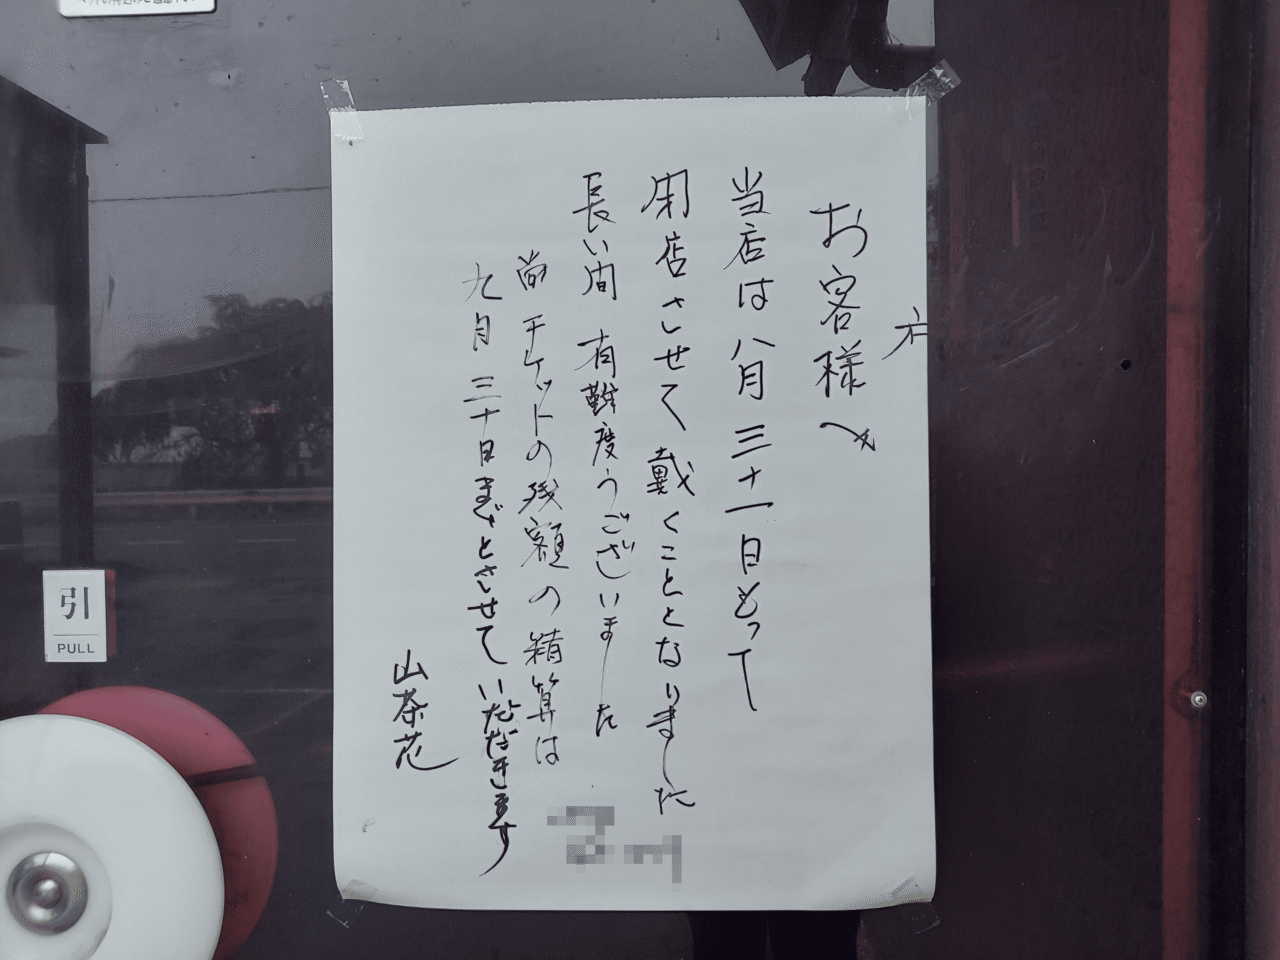 お客様へ
当店は八月三十一日もって
閉店させて戴くこととなりました
長い間 有難度うございました
尚チケットの残額の精算は
九月三十日までとさせていただきます
山茶花
引
PULL